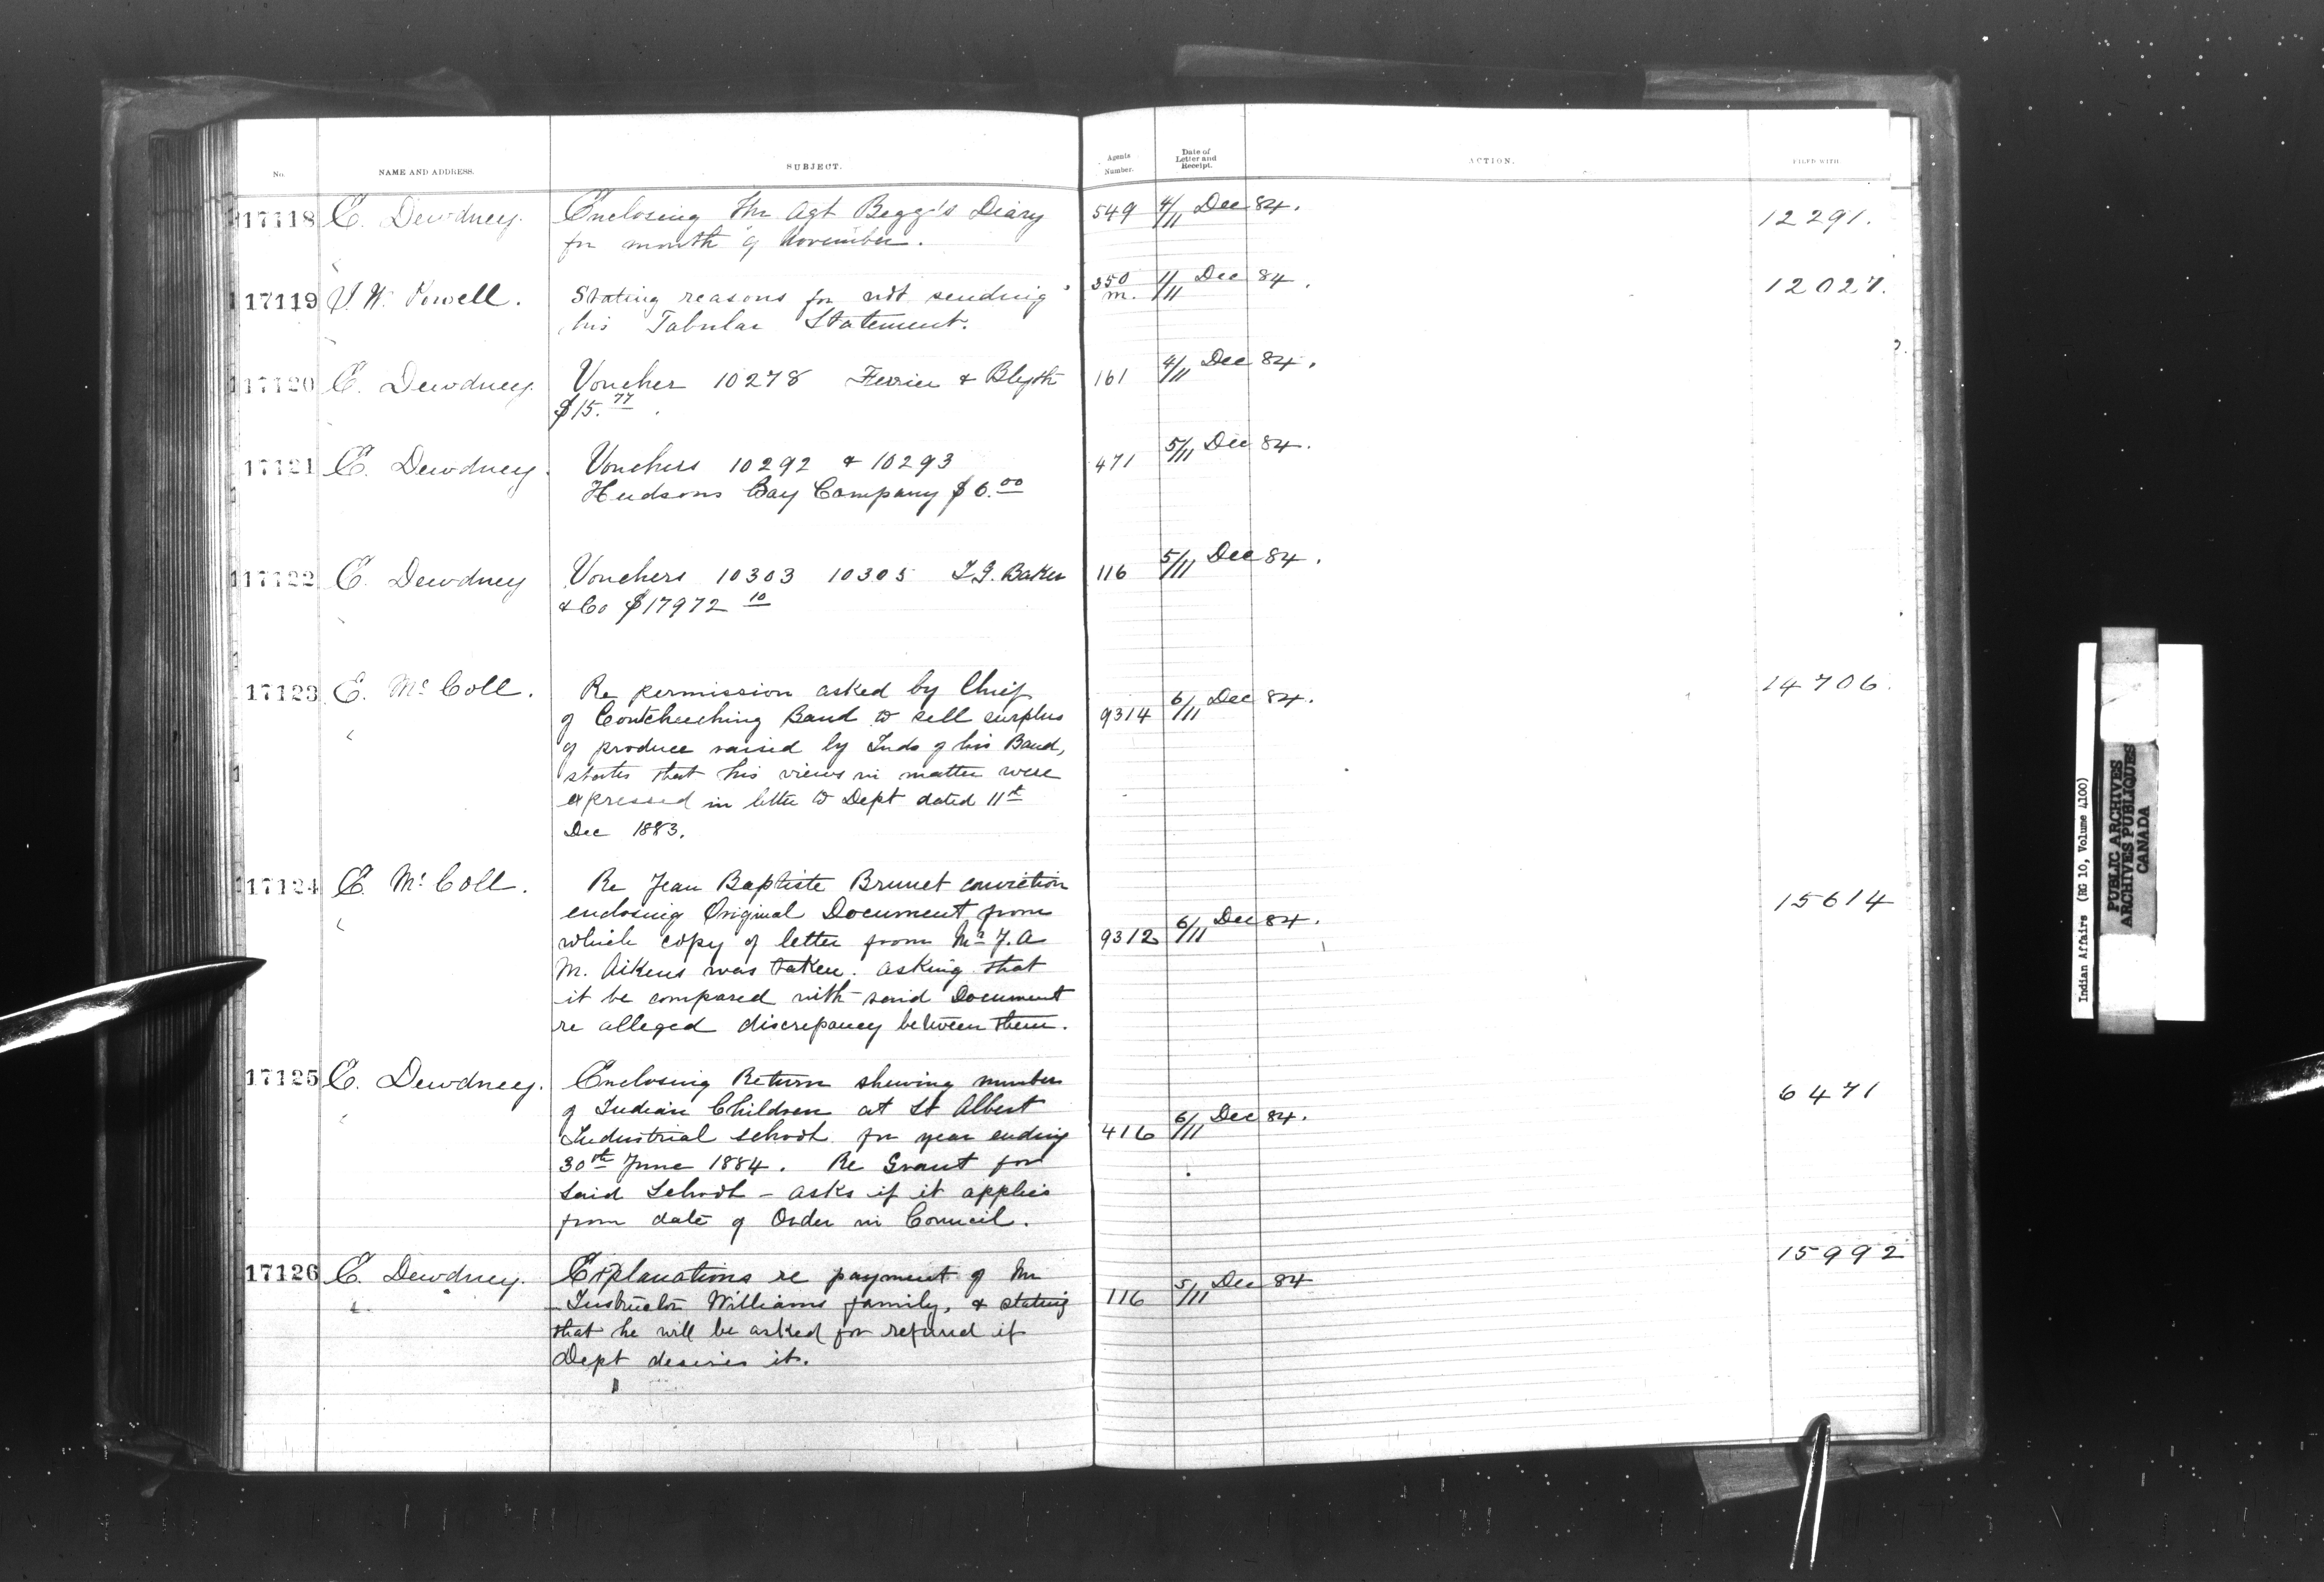 No. NAME AND ADDRESS. SUBJECT. Agents Number. Date of Letter and Receipt. ACTION. FILED WITH
17118 E. Dewdney. Enclosing Fm Agt Begg's Diary 549 4/11 Dec 84. 12291.
for month of November.
17119 I. W. Powell. Stating reasons for not sending 350 m. 1/11 Dec 84. 12027.
his Tabular Statement.
17120 E. Dewdney. Voucher 10278 Ferrier & Blyth 161 4/11 Dec 84.
$15.77
17121 E. Dewdney. Vouchers 10292 & 10293 471 5/11 Dec 84.
Hudsons Bay Company $6.00
17122 E. Dewdney Vouchers 10303 10305 I. G. Baker 116 5/11 Dec 84.
& Co $17972 10
17123 E. McColl. Re permission asked by Chief 14706.
of Coutcheeching Band to sell surplus 9314 6/11 Dec 84.
of produce raised by Inds of his Band,
" states that his views in matter were
expressed in letter to Dept dated 11th
Dec 1883.
17124 E. McColl. Re Jean Baptiste Brunet conviction 15614
" enclosing Original Document from 6/11 Dec 84.
which copy of letter from Mr J. A. 9312
M. Aikens was taken. asking that
it be compared with said Document
re alleged discrepancy between them.
17125 E. Dewdney. Enclosing Return shewing number 6471
" of Indian Children at St Albert
Industrial School for year ending 416 6/11 Dec 84.
30th June 1884. Re Grant for
said School - asks if it applies
from date of Order in Council.
17126 E. Dewdney. Explanations re payment of Fm 15992
" Instructor Williams family, & stating 116 5/11 Dec 84
that he will be asked for refund if
Dept desires it.
Indian Affairs (RG 10, Volume 4100)
PUBLIC ARCHIVES
ARCHIVES PUBLIQUES
CANADA